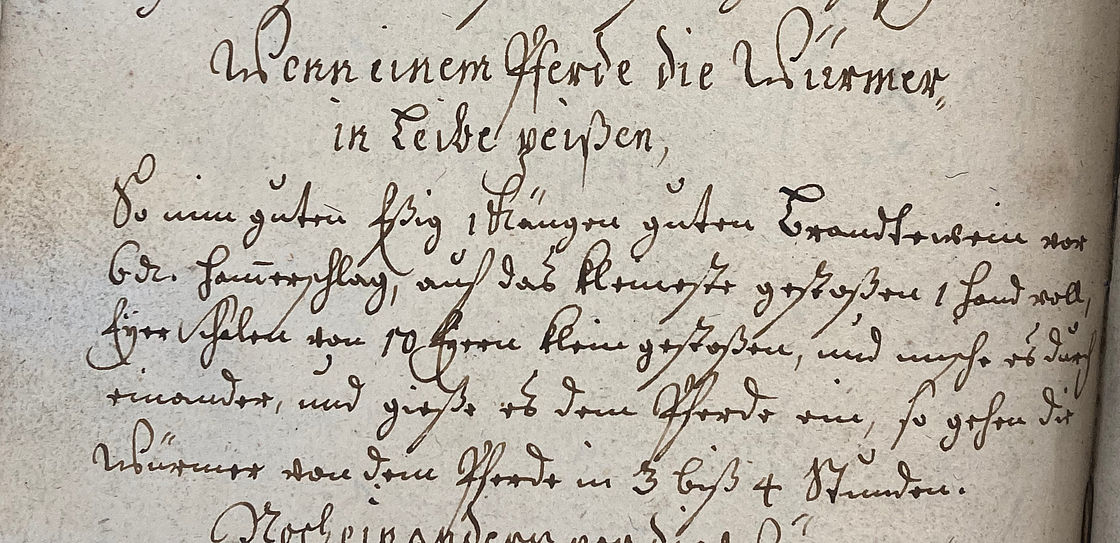 Wenn einem Pferde die Würmer,
in Leibe peißen,
So nim guten Eßig 1 guten Brandtewein vor
6 dr. Hammerschlag, auf das kleineste gestoßen 1 Hand voll,
Eyerschalen von 10 Eyern klein gestoßen, und mische es durch
einander, und gieße es dem Pferde ein, so gehen die
Würmer von dem Pferde in 3 biß 4 Stunden.
Noch ein andern vor die